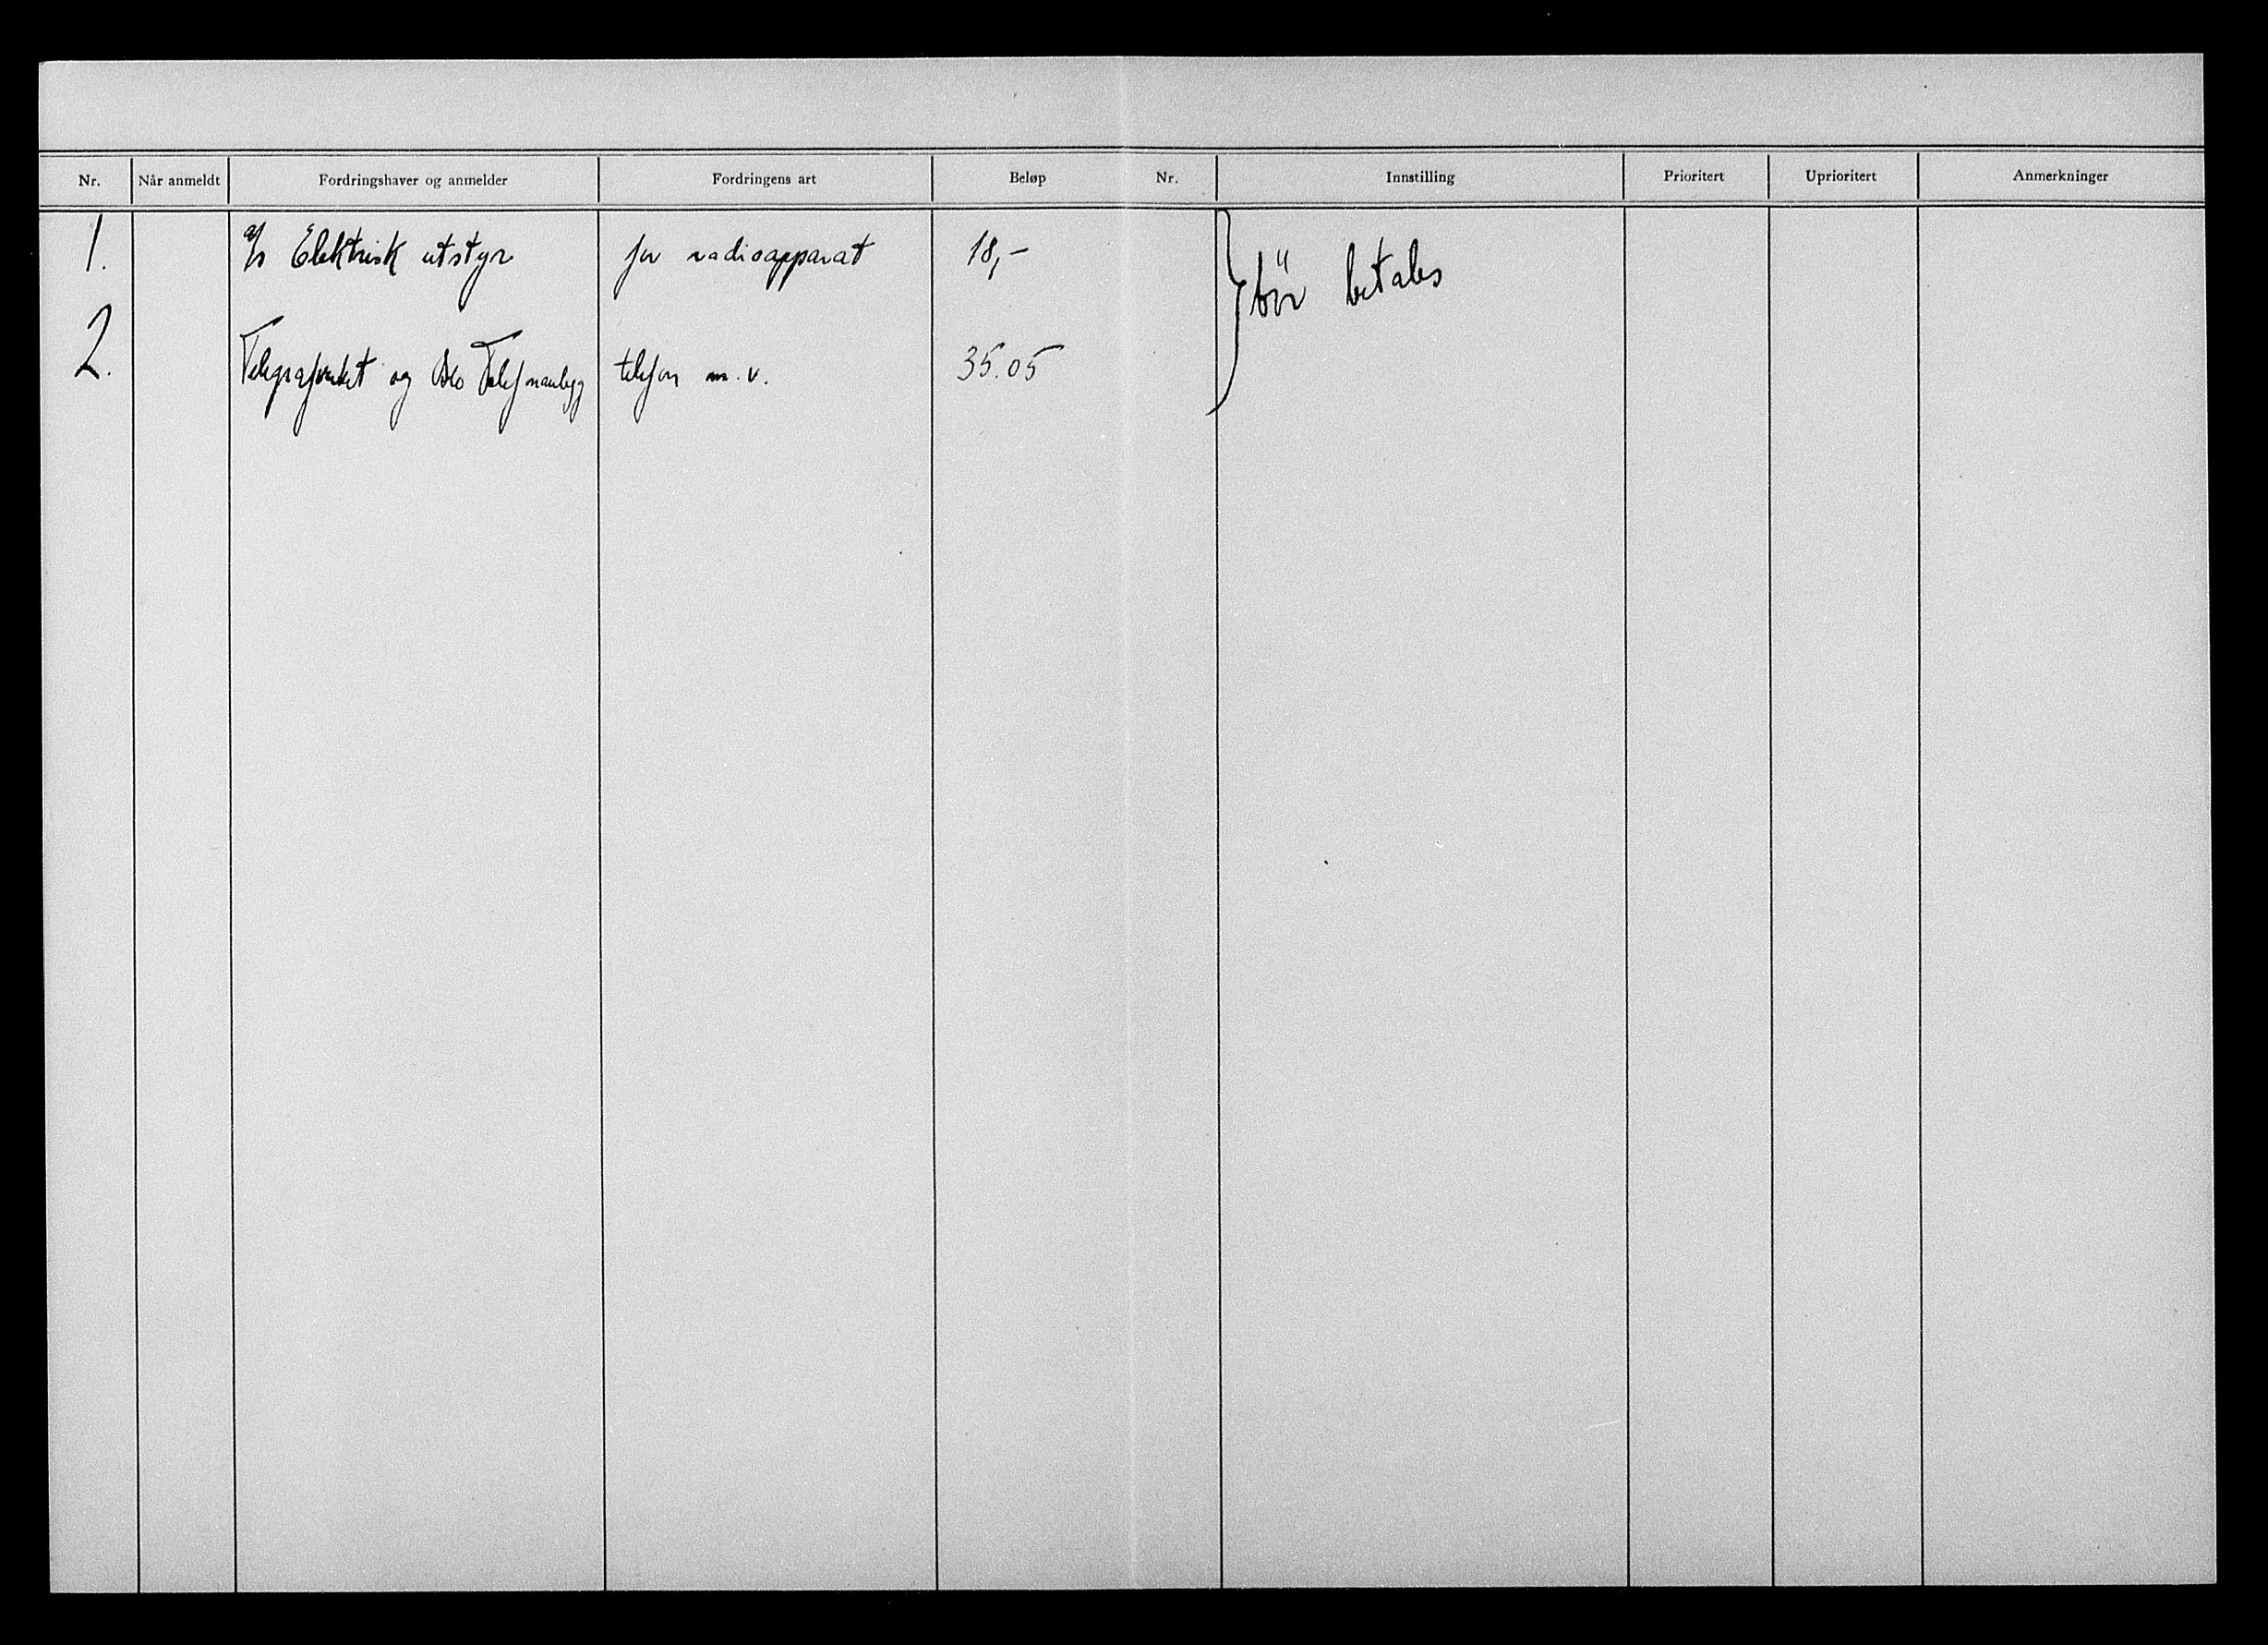 Nr. Når anmeldt Fordringshaver og anmelder Fordringens art Beløp Nr. Innstilling Prioritert Uprioritert Anmerkninger
1. A/S Elektrisk utstyr for radioapparat 18,-
bör betales
2. Telegrafverket og Oslo Telefonanlegg telefon m.v. 35.05